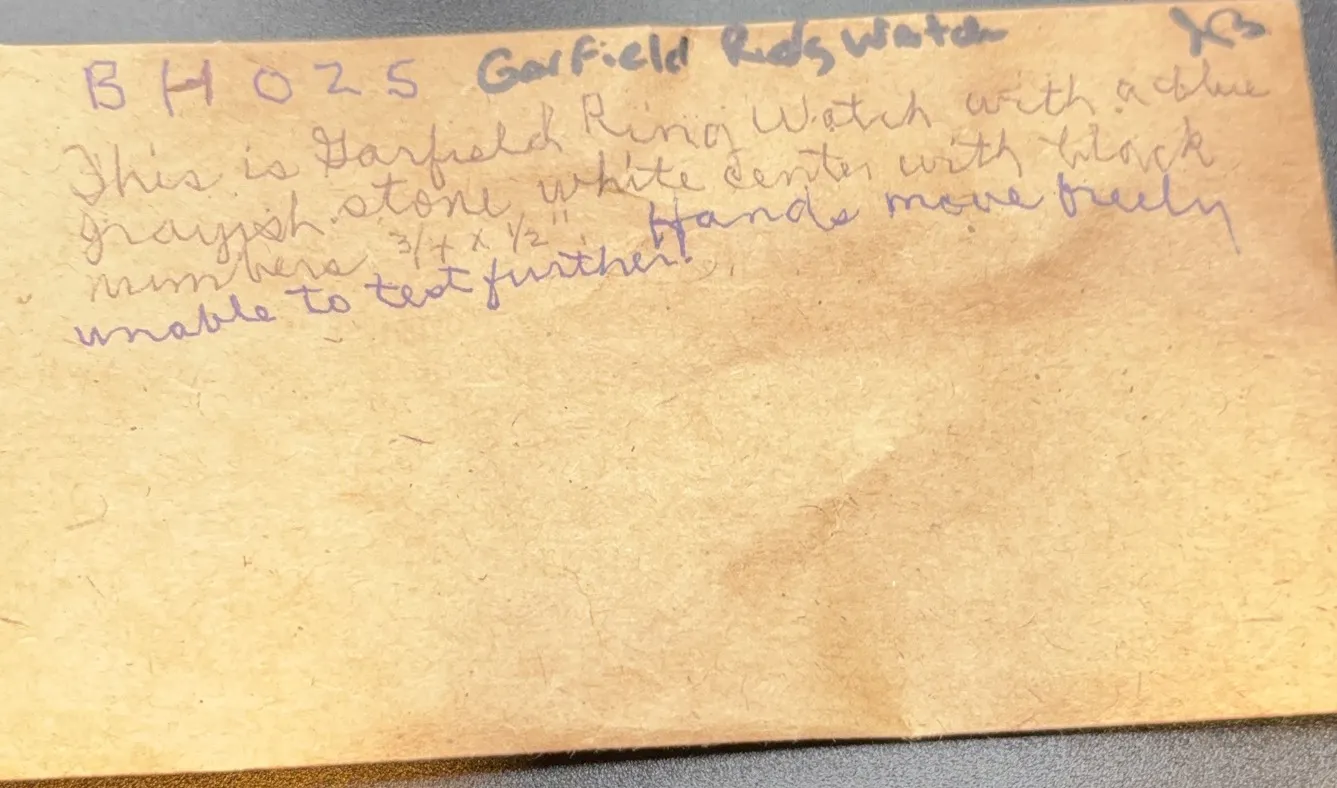 BH025 Garfield Ring Watch
This is Garfield Ring Watch with a blue
grayish stone white center with black
numbers 3/4 x 1/2". Hands move freely
unable to test further.